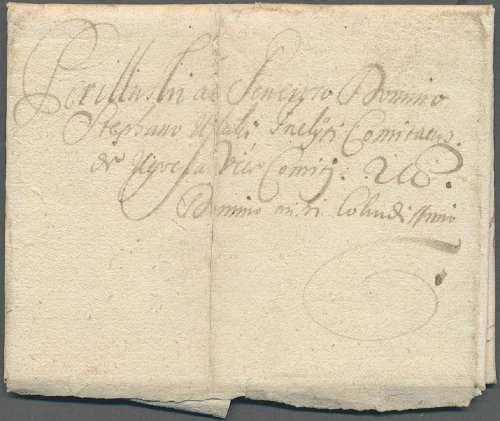 Perillustri ac Generoso Domino
Stephano Inclyti Comitatus
de Ugocsa Vice Comiti. &c.
Domino mihi Colendissimo